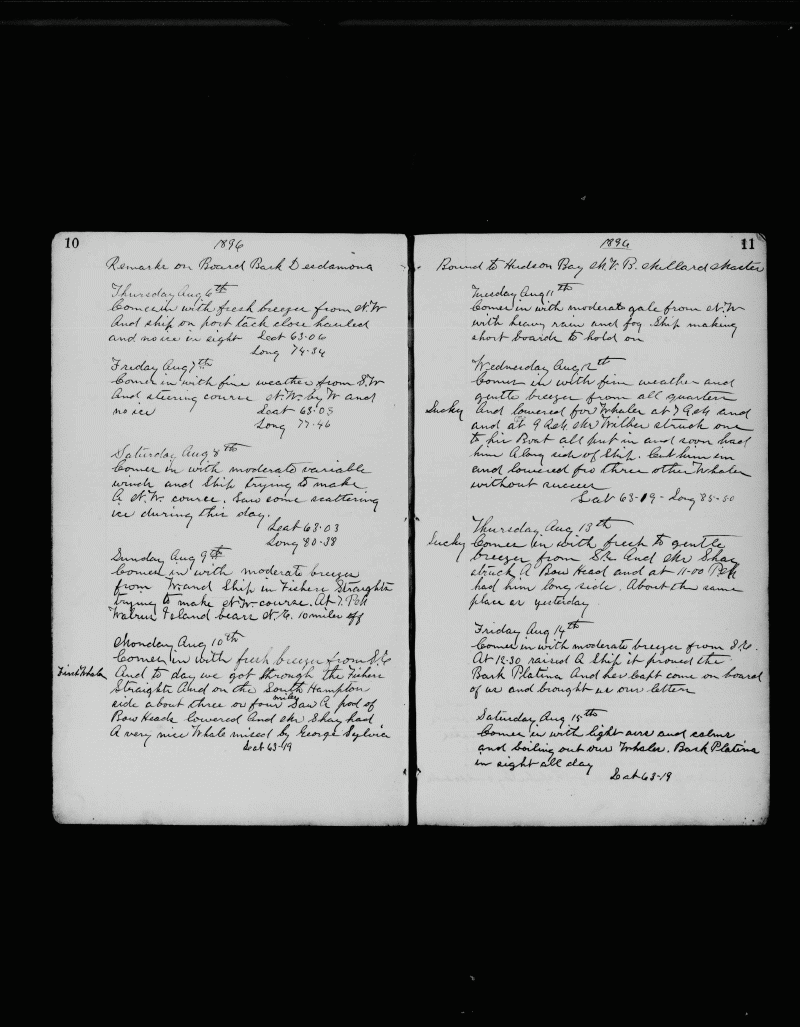 10
1896
Remarks on Board Bark Desdamona
Thursday Aug 6th
Comes in with fresh breezes from N.W
And ship on port tack close hauled
and no ice in sight Lat 63-06
Long 74-34
Friday Aug 7th
Comes in with fine weather from S.W
And steering course N.W. by W and
no ice Lat 63-09
Long 77-46
Saturday Aug 8th
Comes in with moderate variable
winds and Ship trying to make
A N.W. course. Saw some scattering
ice during this day.
Lat 63-03
Long 80-38
Sunday Aug 9th
Comes in with moderate breezes
from W. and Ship in Fishers Straights
trying to make N.W. course. At 7. PM
Walrus Island bears N.E. 10 miles off
Monday Aug 10th
Comes in with fresh breezes from S.E
First Whale And to day we got through the Fishers
Straights And on the South Hampton
side about three or four miles Saw A pod of
Bow Heads lowered And Mr Shay had
A very nice Whale missed by George Sylvia
Lat 63-19
1896
11
Bound to Hudson Bay M.V.B. Millard Master
Tuesday Aug 11th
Comes in with moderate gale from N.W
with heavy rain and fog Ship making
short boards to hold on
Wednesday Aug 12th
Comes in with fine weather and
gentle breezes from all quarters
Lucky And lowered for Whales at 7 AM and
and at 9 AM Mr Wilber struck one
to his Boat all put in and soon had
him Along side of Ship. Cut him in
and lowered for three other Whales
without success
Lat 63-19 - Long 85-50
Thursday Aug 13th
Lucky Comes in with fresh to gentle
breezes from S.E And Mr Shay
struck A Bow Head and at 11-00 PM
had him long side. About the same
place as yesterday.
Friday Aug 14th
Comes in with moderate breezes from S.E.
At 12-30 raised A Ship it proved the
Bark Platina And her Capt come on board
of us and brought us our letters
Saturday Aug 15th
Comes in with light airs and calms
and boiling out our Whales. Bark Platina
in sight all day
Lat 63-19